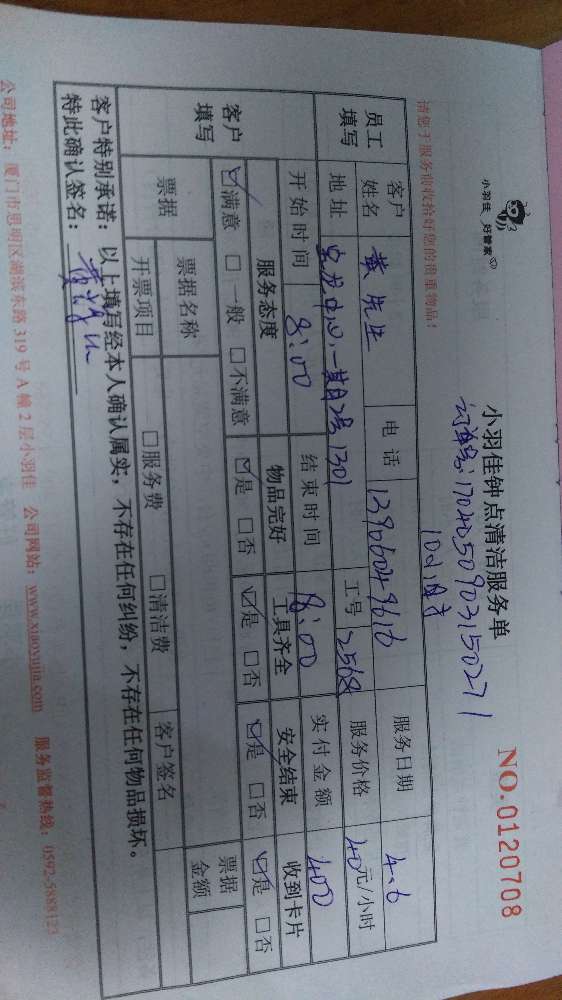 小羽佳 好管家
小羽佳钟点清洁服务单
NO.0120708
订单号:170405090315027 1
10小时
请您于服务前收拾好您的贵重物品!
员工填写 客户姓名 黄先生 电话 13906049616 服务日期 4.6
地址 宝龙中心一期2号1301 工号 2568 服务价格 40元/小时
开始时间 8:00 结束时间 18:00 实付金额 400
客户填写 服务态度 物品完好 工具齐全 安全结束 收到卡片
☑满意 □一般 □不满意 ☑是 □否 ☑是 □否 ☑是 □否 ☑是 □否
票据 票据名称 票据金额
开票项目 □服务费 □清洁费 客户签名
客户特别承诺:以上填写经本人确认属实,不存在任何纠纷,不存在任何物品损坏。
特此确认签名:
公司地址:厦门市思明区湖滨东路 319 号 A 幢 2 层小羽佳 公司网站:www.xiaoyujia.com 服务监督热线:0592-5888123